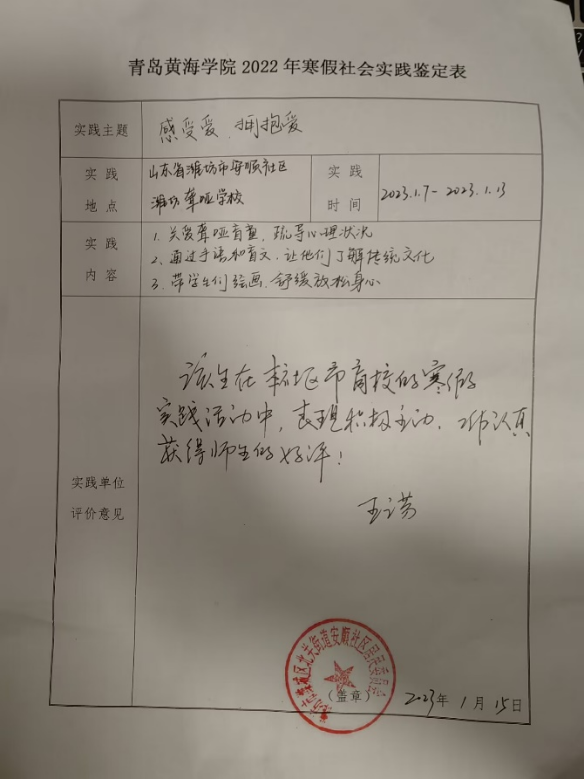 青岛黄海学院 2022 年寒假社会实践鉴定表
实践主题
感受爱、拥抱爱
实践地点
山东省潍坊市安顺社区
潍坊聋哑学校
实践时间
2023.1.7- 2023.1.13
实践内容
1. 关爱聋哑盲童，疏导心理状况
2、通过手语和盲文，让他们了解传统文化
3. 带学生们绘画、舒缓放松身心
实践单位
评价意见
该生在本社区市盲校的寒假
实践活动中，表现积极主动，工作认真
获得师生的好评！
北关街道安顺社区居民委员会
（盖章）
2023年 1 月 15日